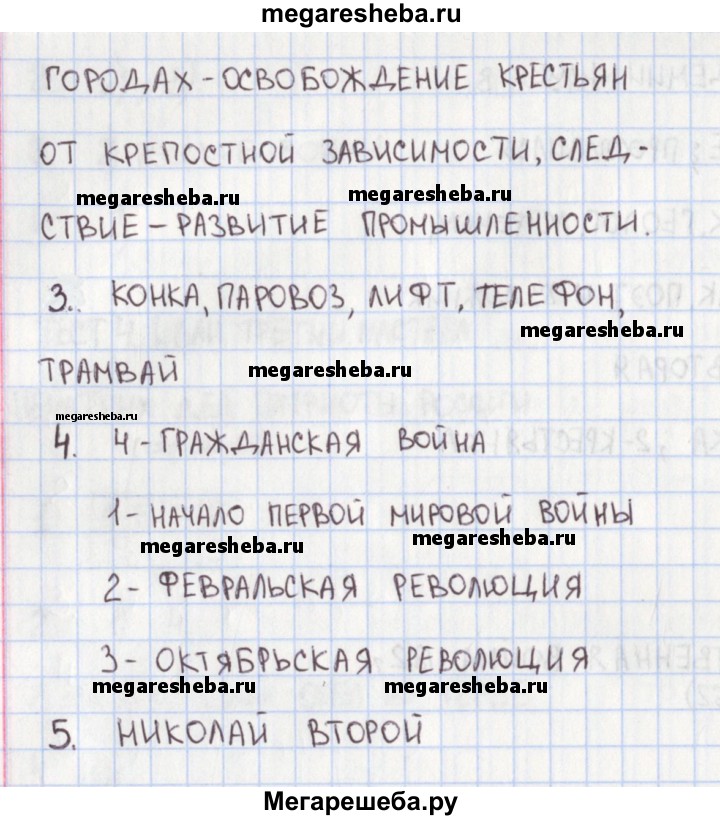 megaresheba.ru
ГОРОДАХ - ОСВОБОЖДЕНИЕ КРЕСТЬЯН
ОТ КРЕПОСТНОЙ ЗАВИСИМОСТИ, СЛЕД-
megaresheba.ru megaresheba.ru
СТВИЕ - РАЗВИТИЕ ПРОМЫШЛЕННОСТИ.
3. КОНКА, ПАРОВОЗ, ЛИФТ, ТЕЛЕФОН,
megaresheba.ru
ТРАМВАЙ megaresheba.ru
megaresheba.ru
4. 4 - ГРАЖДАНСКАЯ ВОЙНА
1 - НАЧАЛО ПЕРВОЙ МИРОВОЙ ВОЙНЫ
megaresheba.ru megaresheba.ru
2 - ФЕВРАЛЬСКАЯ РЕВОЛЮЦИЯ
3 - ОКТЯБРЬСКАЯ РЕВОЛЮЦИЯ
megaresheba.ru megaresheba.ru
5. НИКОЛАЙ ВТОРОЙ
Мегарешеба.ру